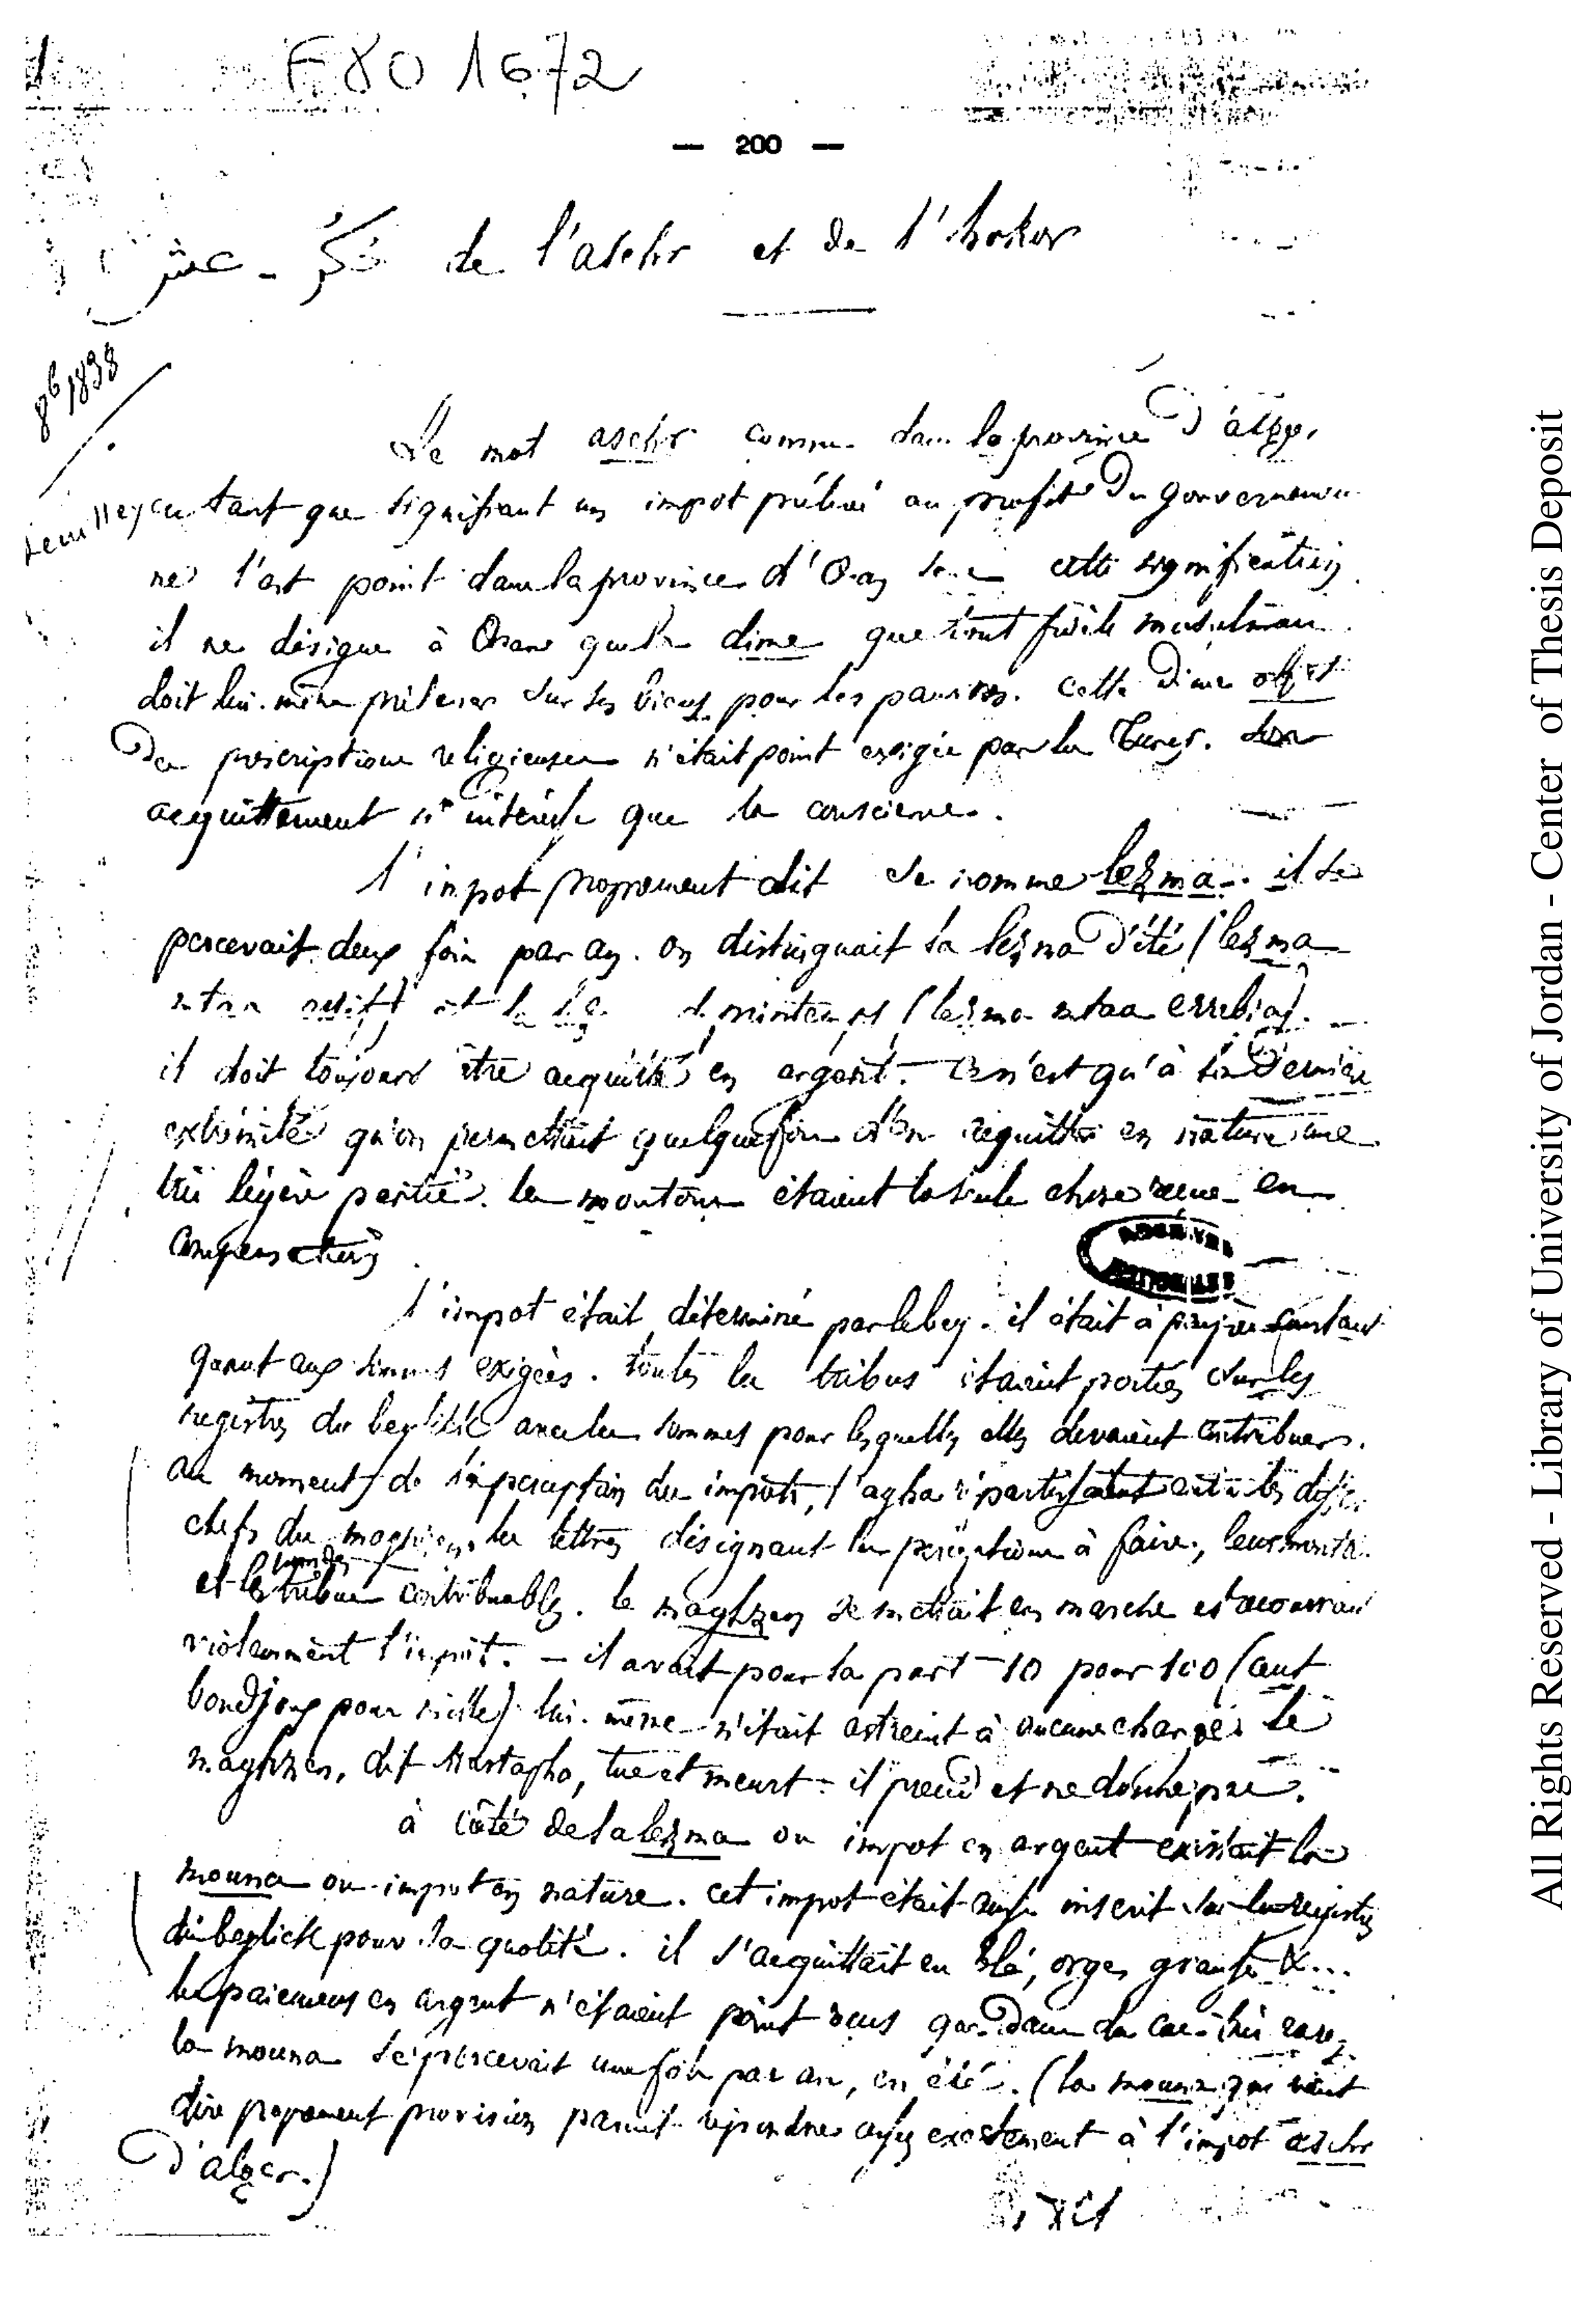 F 80 1672
— 200 —
عشر - حكر de l'aschr et de l'hokor
8b 1838
Le mot aschr connu dans la province d'alger
en tant que signifiant un impot prélevé au profit du gouvernemen
ne l'est point dans la province d'Oran sous cette signification
il ne désigne à Oran que la dime que tout fidèle musulman
doit lui-même prélever sur ses biens pour les pauvres. Cette dime objet
de prescriptions religieuses n'était point exigée par les Turcs. Son
acquittement n'intéresse que la conscience.
l'impot proprement dit se nomme lezma. il se
percevait deux fois par an. on distinguait la lezma d'été (lezma
ntaa essif) et la printemps (lezma ntaa errebia).
il doit toujours être acquitté en argent. Ce n'est qu'à la dernière
extrémité qu'on permettait quelquefois d'en acquitter en nature une
très légère partie. les moutons étaient la seule chose reçue en
compensation
ARCHIVES NATIONALES
l'impot était déterminé par le bey. il était à peu près constant
quant aux sommes exigées. toutes les tribus étaient portées sur les
registres du beylick avec les sommes pour lesquelles elles devaient contribuer.
au moment de la perception des impôts, l'agha entre les
chefs du maghzen les lettres désignant les perceptions à faire, leur montan
et les tribus contribuables. le maghzen se mettait en marche et
violemment l'impôt. — il avait pour sa part 10 pour 100 (cent
boudjous pour mille) lui-même n'était astreint à aucune charge. le
maghzen, dit Mostapha, tue et meurt - il prend et ne donne pas.
à côté de la lezma ou impot en argent existait la
mouna ou impot en nature. cet impot était aussi inscrit sur les registres
du beylick pour sa quotité. il s'acquittait en blé, orges &...
les paiemens en argent n'étaient point reçus que dans des cas très rares.
la mouna se percevait une fois par an, en été. (la mouna qui veut
dire proprement provision parait répondre assez exactement à l'impot aschr
d'alger.)
All Rights Reserved - Library of University of Jordan - Center of Thesis Deposit